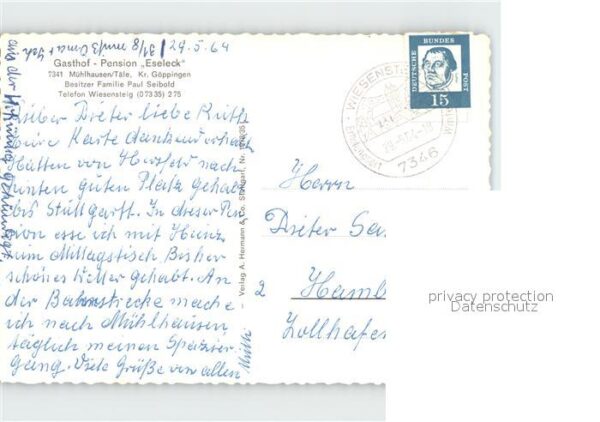 29.5.64
Gasthof - Pension „Eseleck"
7341 Mühlhausen/Täle, Kr. Göppingen
Besitzer Familie Paul Seibold
Telefon Wiesensteig (07335) 275
Lieber Dieter liebe Ruth
Eure Karte dankend erhal
Hatten von Herzfeld nach
hinten guten Platz gehabt
bis Stuttgart. In dieser Pen
sion esse ich mit Heinz
zum Mittagstisch Bisher
schönes Wetter gehabt. An
der Bahnstrecke mache
ich nach Mühlhausen
täglich meinen Spazier
gang. Viele Grüße von allen
Verlag A. Hermann & Co. Stuttgart, Nr.
DEUTSCHE BUNDES POST
15
WIESENST
7346
Herrn
Dieter Sa
2 Hamb
Zollhafe
privacy protection
Datenschutz